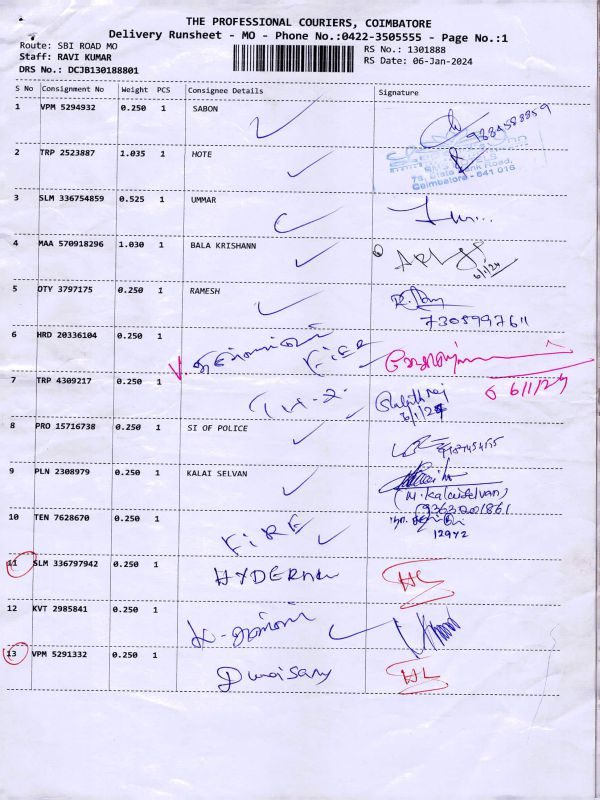 THE PROFESSIONAL COURIERS, COIMBATORE
Delivery Runsheet - MO - Phone No.:0422-3505555 - Page No.:1
Route: SBI ROAD MO
RS No.: 1301888
Staff: RAVI KUMAR
RS Date: 06-Jan-2024
DRS No.: DCJB130188801
S No Consignment No Weight PCS Consignee Details Signature
1 VPM 5294932 0.250 1 SABON
9884588859
2 TRP 2523887 1.035 1 HOTE
78, State Bank Road,
Coimbatore - 641 016
3 SLM 336754859 0.525 1 UMMAR
4 MAA 570918296 1.030 1 BALA KRISHANN
6/1/24
5 OTY 3797175 0.250 1 RAMESH
7305997611
6 HRD 20336104 0.250 1
FIRE
6/1/24
7 TRP 4309217 0.250 1
6/1/24
8 PRO 15716738 0.250 1 SI OF POLICE
9 PLN 2308979 0.250 1 KALAI SELVAN
(M. Kalaiselvan)
9363201861
10 TEN 7628670 0.250 1 FIRE
12972
11 SLM 336797942 0.250 1 HC
12 KVT 2985841 0.250 1
13 VPM 5291332 0.250 1 Duraisamy HL